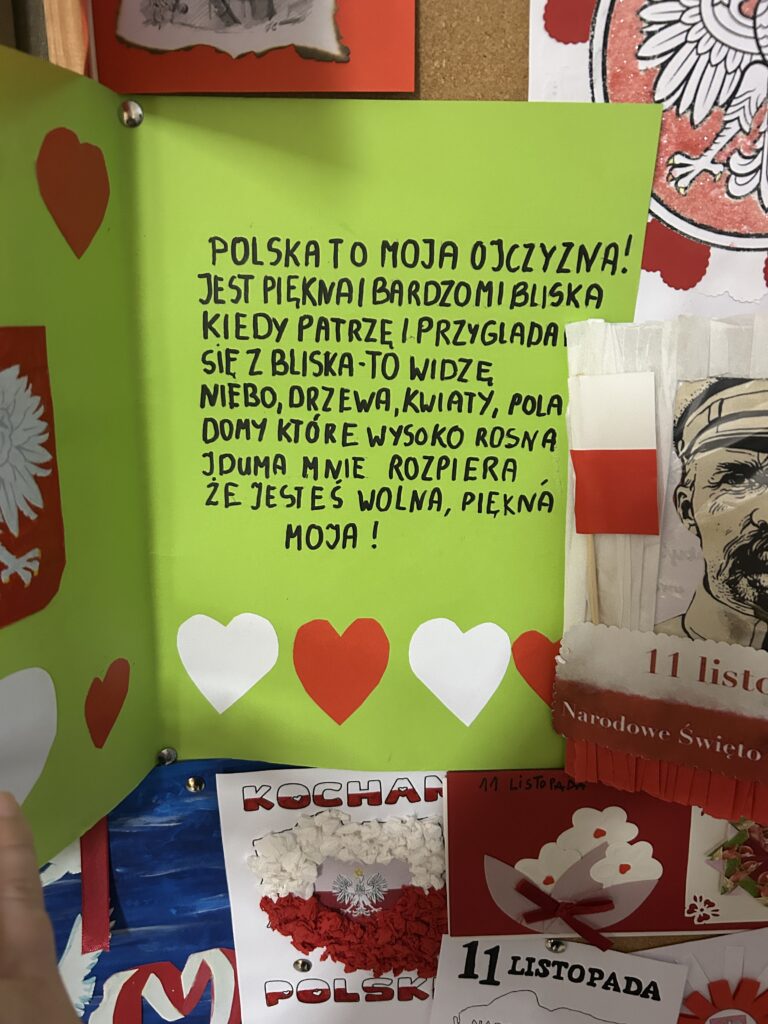 POLSKA TO MOJA OJCZYZNA!
JEST PIĘKNA I BARDZO MI BLISKA
KIEDY PATRZĘ I PRZYGLĄDA
SIĘ Z BLISKA-TO WIDZĘ
NIEBO, DRZEWA, KWIATY, POLA
DOMY KTÓRE WYSOKO ROSNĄ
I DUMA MNIE ROZPIERA
ŻE JESTEŚ WOLNA, PIĘKNA
MOJA!
11 listo
Narodowe Święto
KOCHAM
POLSK
11 LISTOPADA
11 LISTOPADA